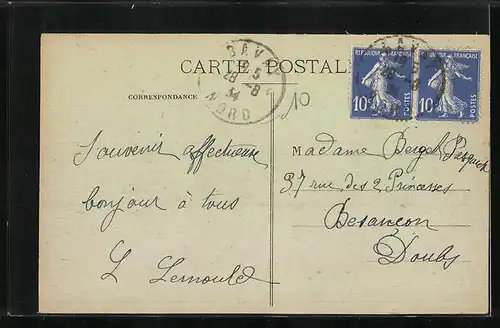 CARTE POSTALE
CORRESPONDANCE
BAVAY
28 -8
34
NORD
10
REPUBLIQUE FRANÇAISE
10c
POSTES
REPUBLIQUE FRANÇAISE
10c
POSTES
Souvenir affectueux
bonjour à tous
L Lernould
Madame Berget Pasquier
37 rue des 2 Princesses
Besançon
Doubs